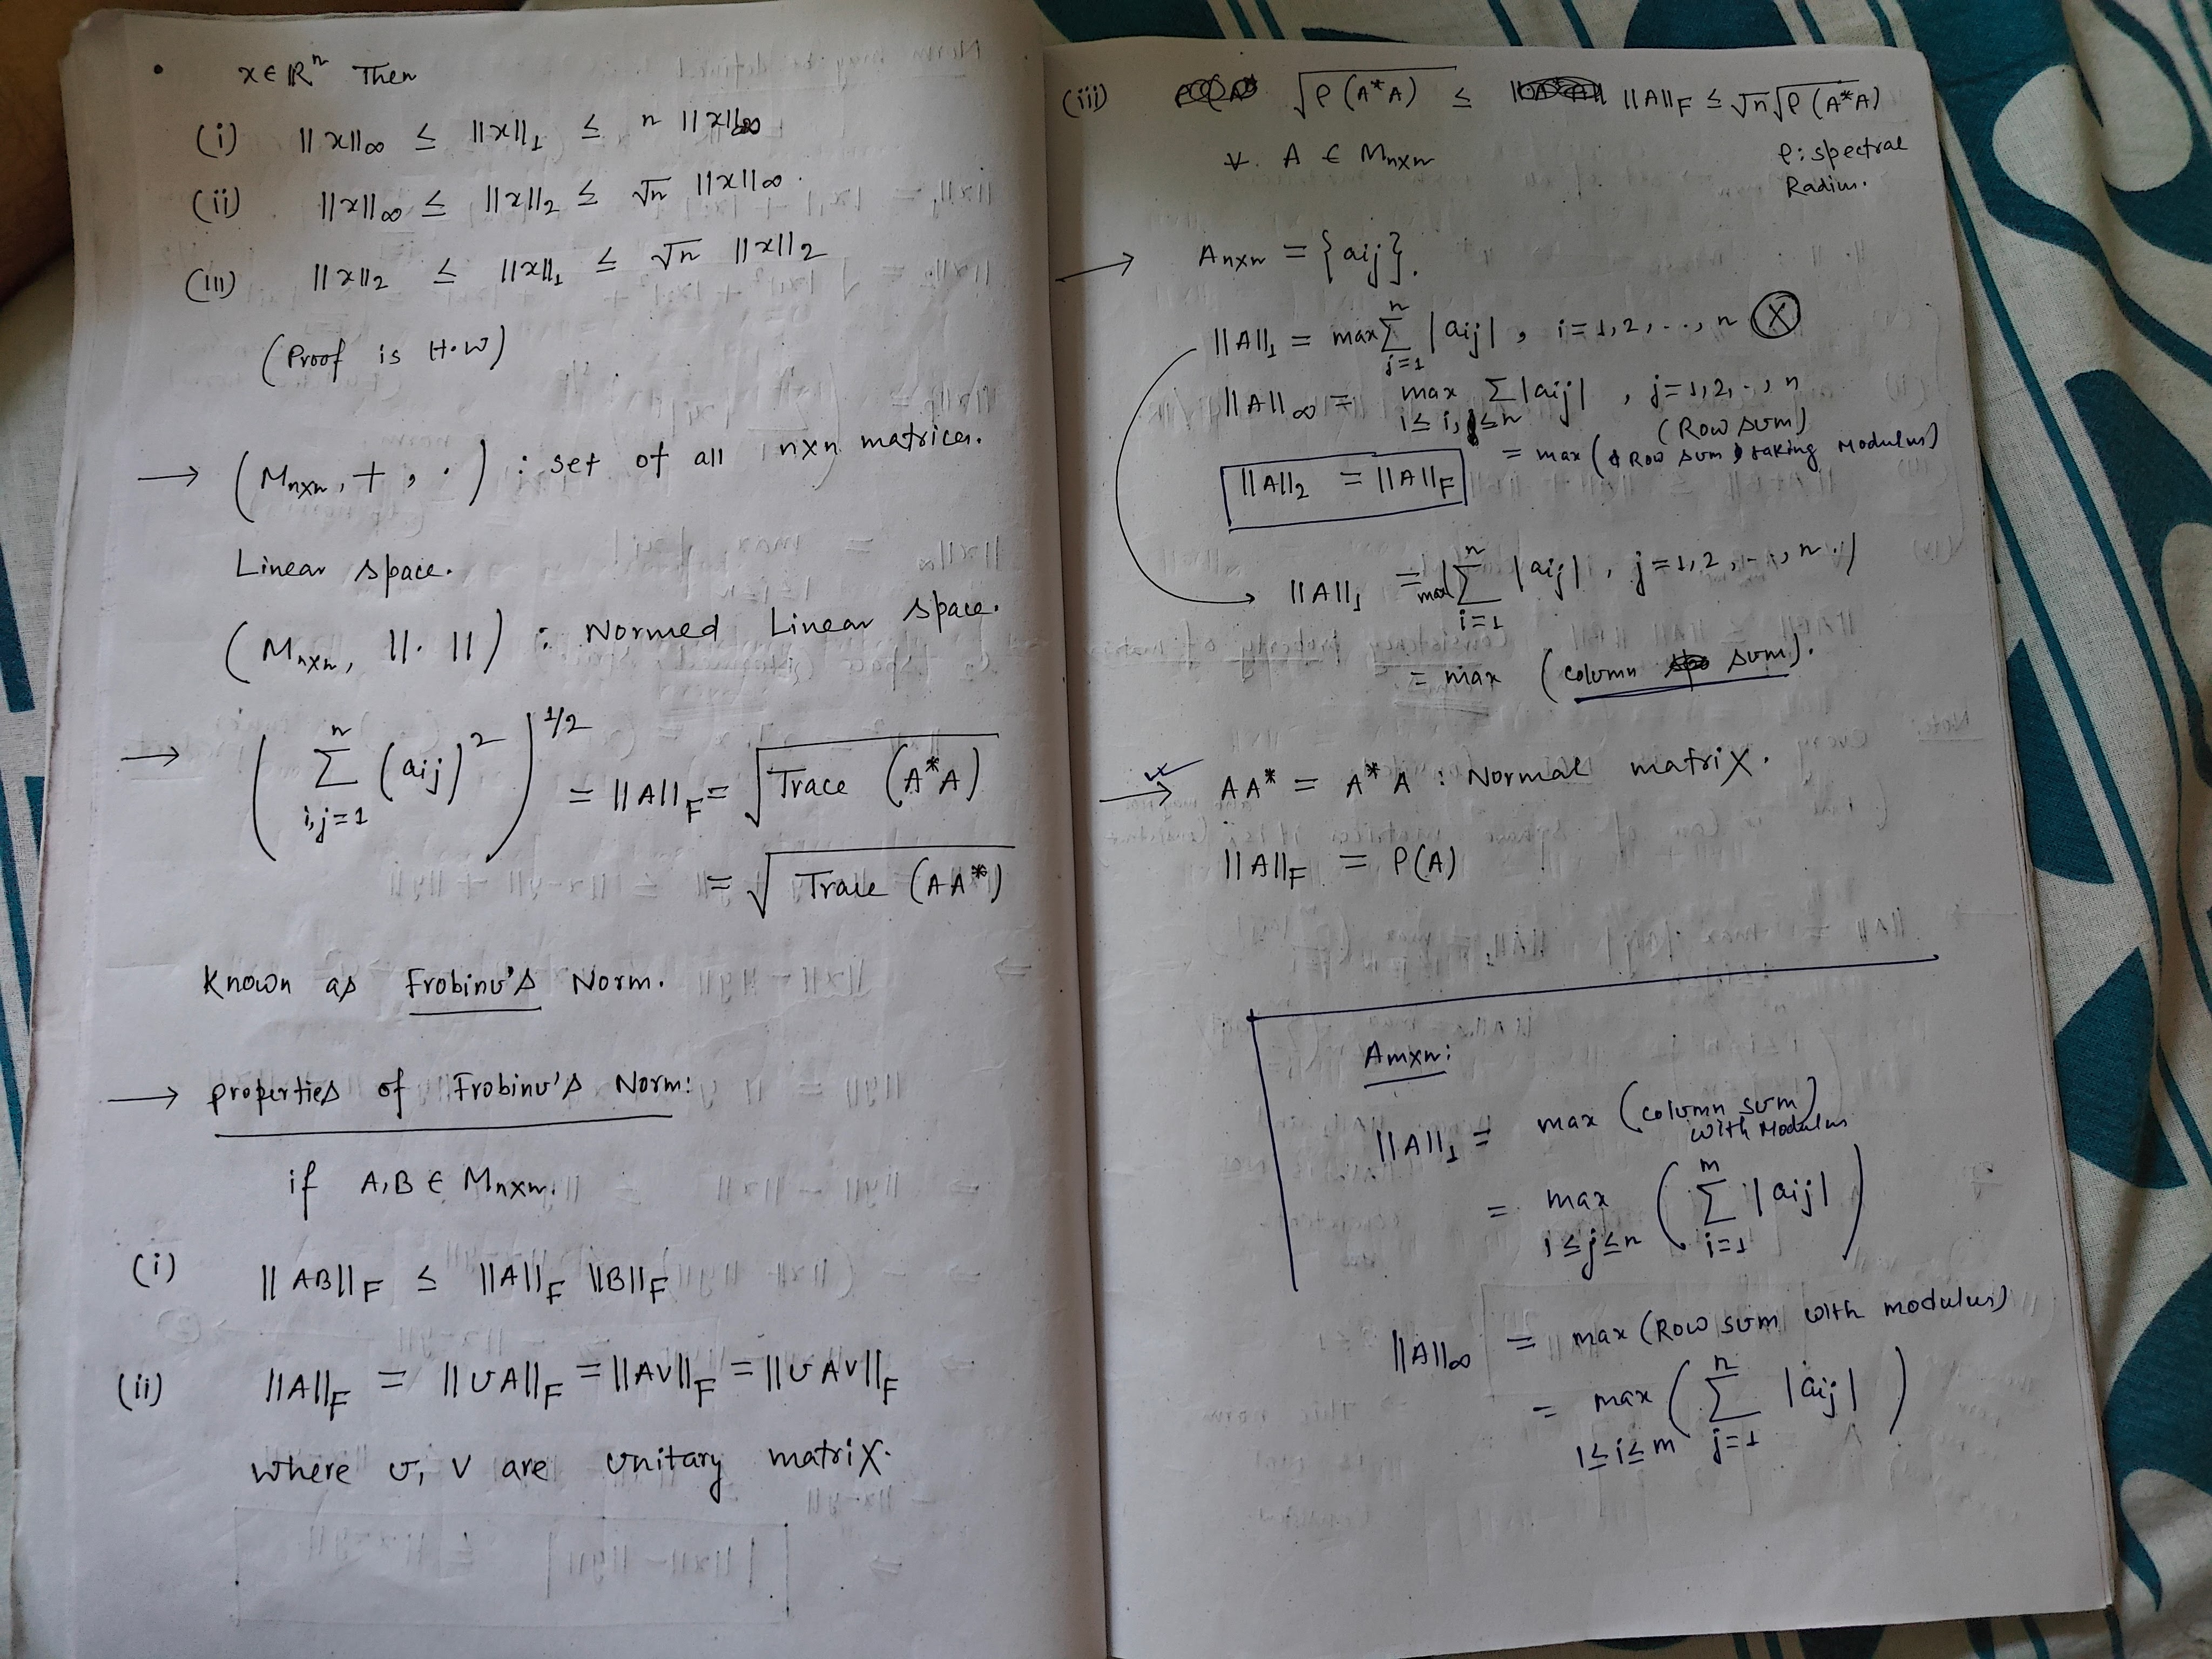 • x ∈ ℝⁿ Then
(i) ||x||∞ ≤ ||x||₁ ≤ n ||x||∞
(ii) ||x||∞ ≤ ||x||₂ ≤ √n ||x||∞.
(iii) ||x||₂ ≤ ||x||₁ ≤ √n ||x||₂
(Proof is H.W)
→ (Mnxn, +, ·) : set of all nxn matrices.
Linear space.
(Mnxn, ||·||) : Normed Linear space.
→ ( Σ_{i,j=1}^{n} (aij)² )^{1/2} = ||A||_F = √Trace (A*A)
= √Trace (AA*)
Known as Frobinu's Norm.
→ properties of Frobinu's Norm:
if A, B ∈ Mnxn.
(i) ||AB||_F ≤ ||A||_F ||B||_F
(ii) ||A||_F = ||UA||_F = ||AV||_F = ||UAV||_F
where U, V are unitary matrix.
(iii) √ρ(A*A) ≤ ||A||_F ≤ √n √ρ(A*A)
∀. A ∈ Mnxn ρ: spectral
Radius.
→ Anxn = {aij}.
||A||₁ = max Σ_{j=1}^{n} |aij| , i=1,2,..,n Ⓧ
||A||∞ = max_{i≤i,j≤n} Σ|aij| , j=1,2,..,n
(Row sum)
= max (Row sum taking modulus)
||A||₂ = ||A||_F
||A||₁ = max(Σ_{i=1}^{n} |aij| , j=1,2,..,n.)
= max (column sum).
→ AA* = A*A : Normal matrix.
||A||_F = ρ(A)
Amxn:
||A||₁ = max (column sum)
with Modulus
= max_{1≤j≤n} ( Σ_{i=1}^{m} |aij| )
||A||∞ = max (Row sum with modulus)
= max_{1≤i≤m} ( Σ_{j=1}^{n} |aij| )